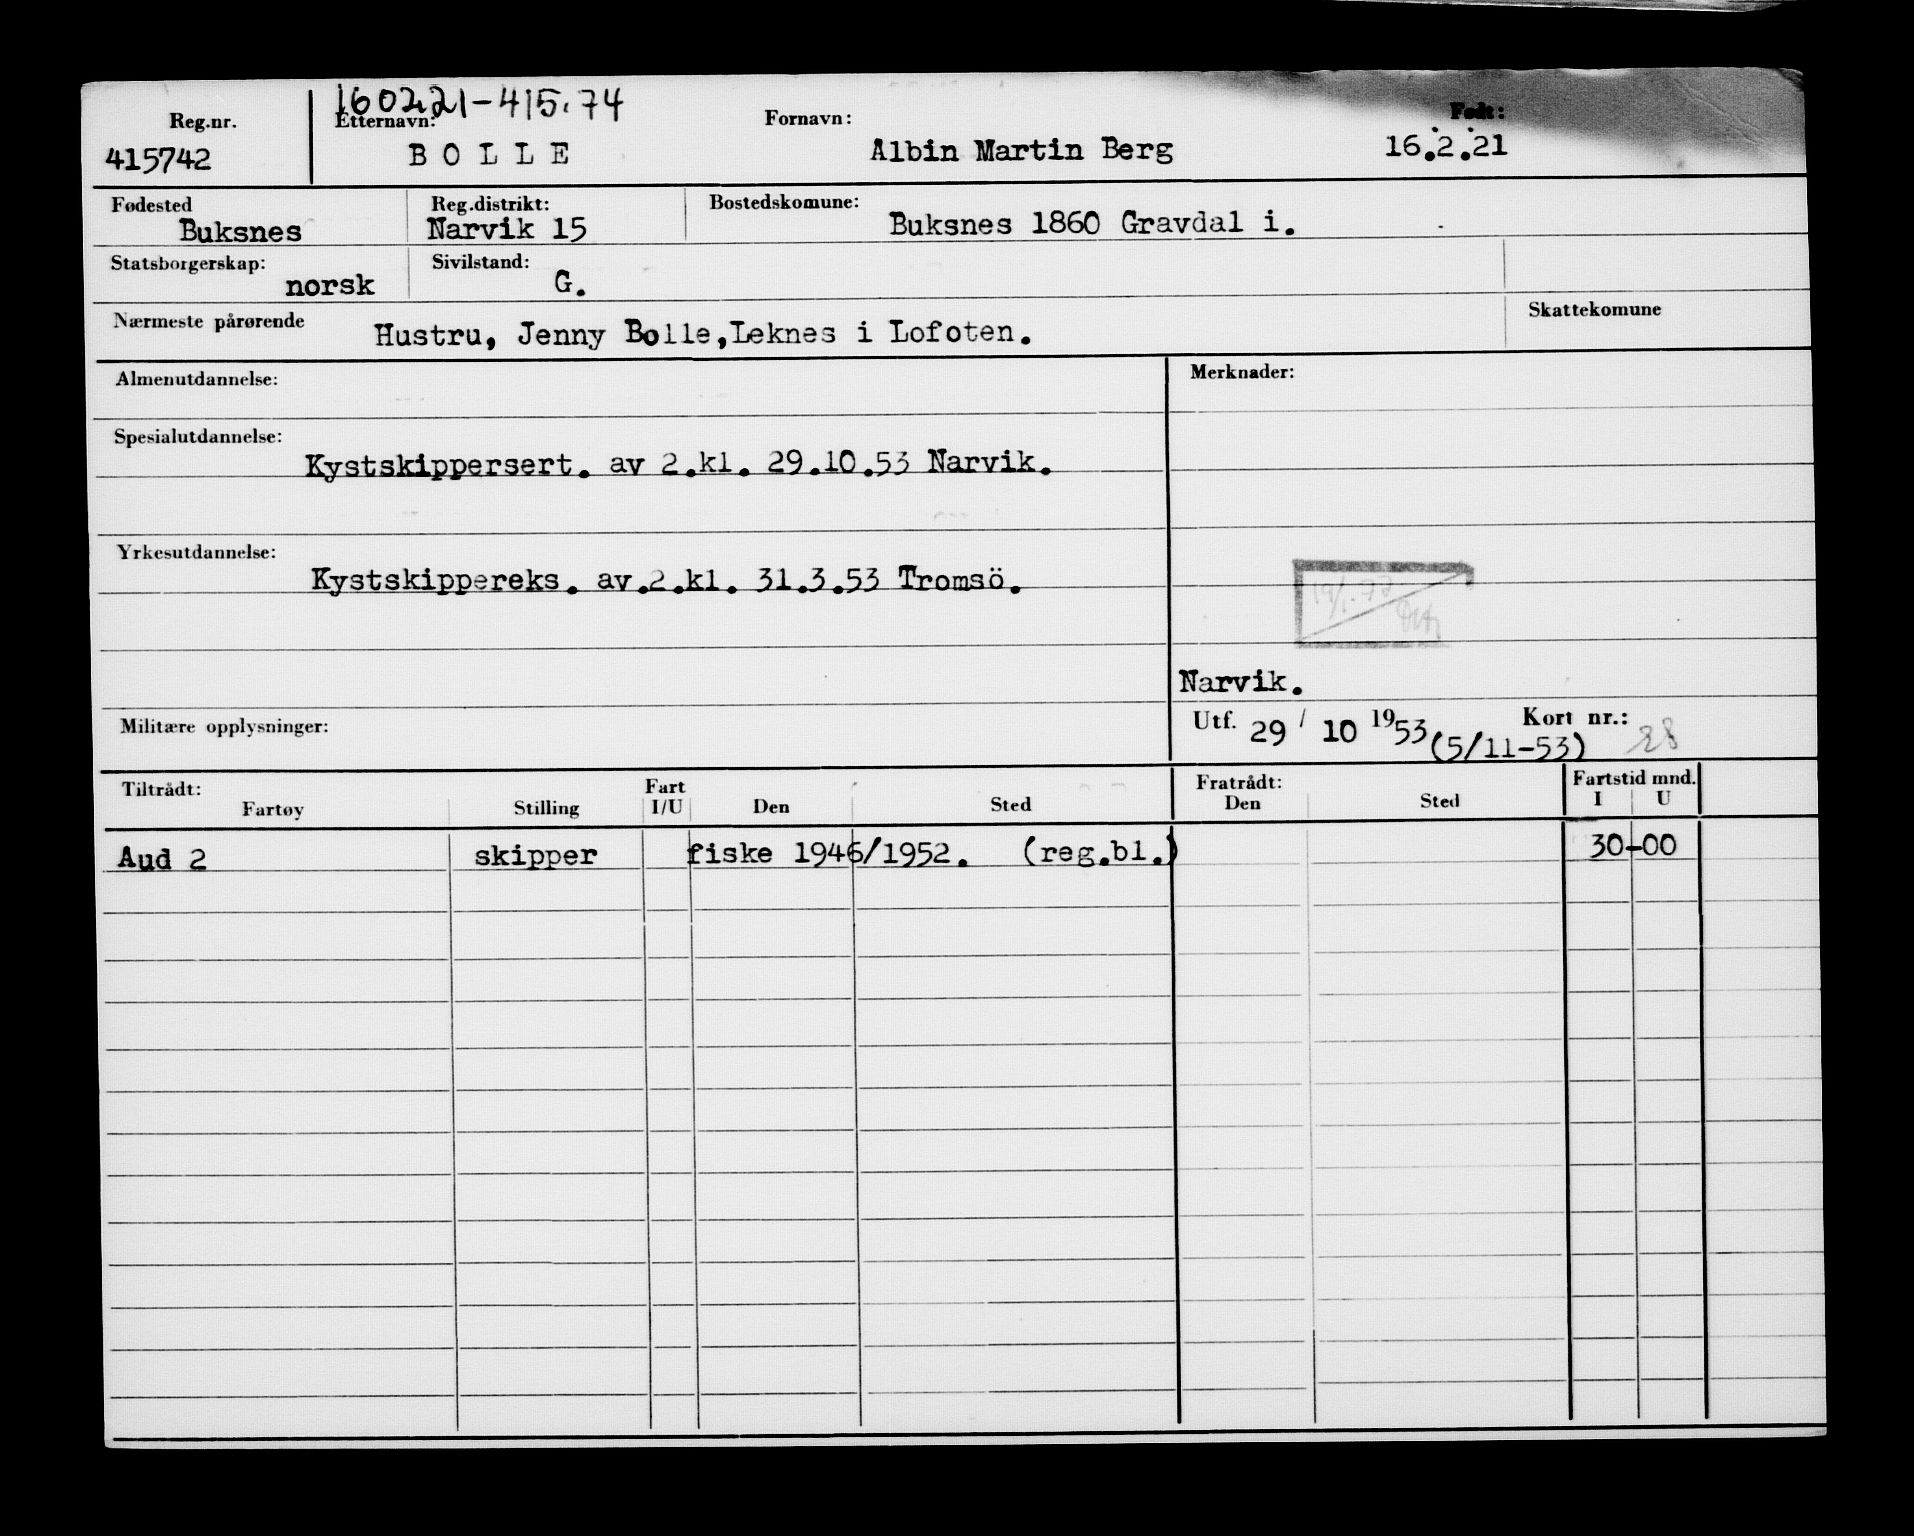 160221-415.74
Reg.nr. Etternavn: Fornavn: Født:
415742 BOLLE Albin Martin Berg 16.2.21
Fødested Reg.distrikt: Bostedskomune:
Buksnes Narvik 15 Buksnes 1860 Gravdal i.
Statsborgerskap: Sivilstand:
norsk G.
Nærmeste pårørende Skattekomune
Hustru, Jenny Bolle,Leknes i Lofoten.
Almenutdannelse: Merknader:
Spesialutdannelse:
Kystskippersert. av 2.kl. 29.10.53 Narvik.
Yrkesutdannelse:
Kystskippereks. av.2.kl. 31.3.53 Tromsö.
Narvik.
Militære opplysninger: Utf. 29 / 10 1953 (5/11-53) Kort nr.: 28
Tiltrådt: Fart Fratrådt: Fartstid mnd.
Fartøy Stilling I/U Den Sted Den Sted I U
Aud 2 skipper fiske 1946/1952. (reg.bl.) 30-00